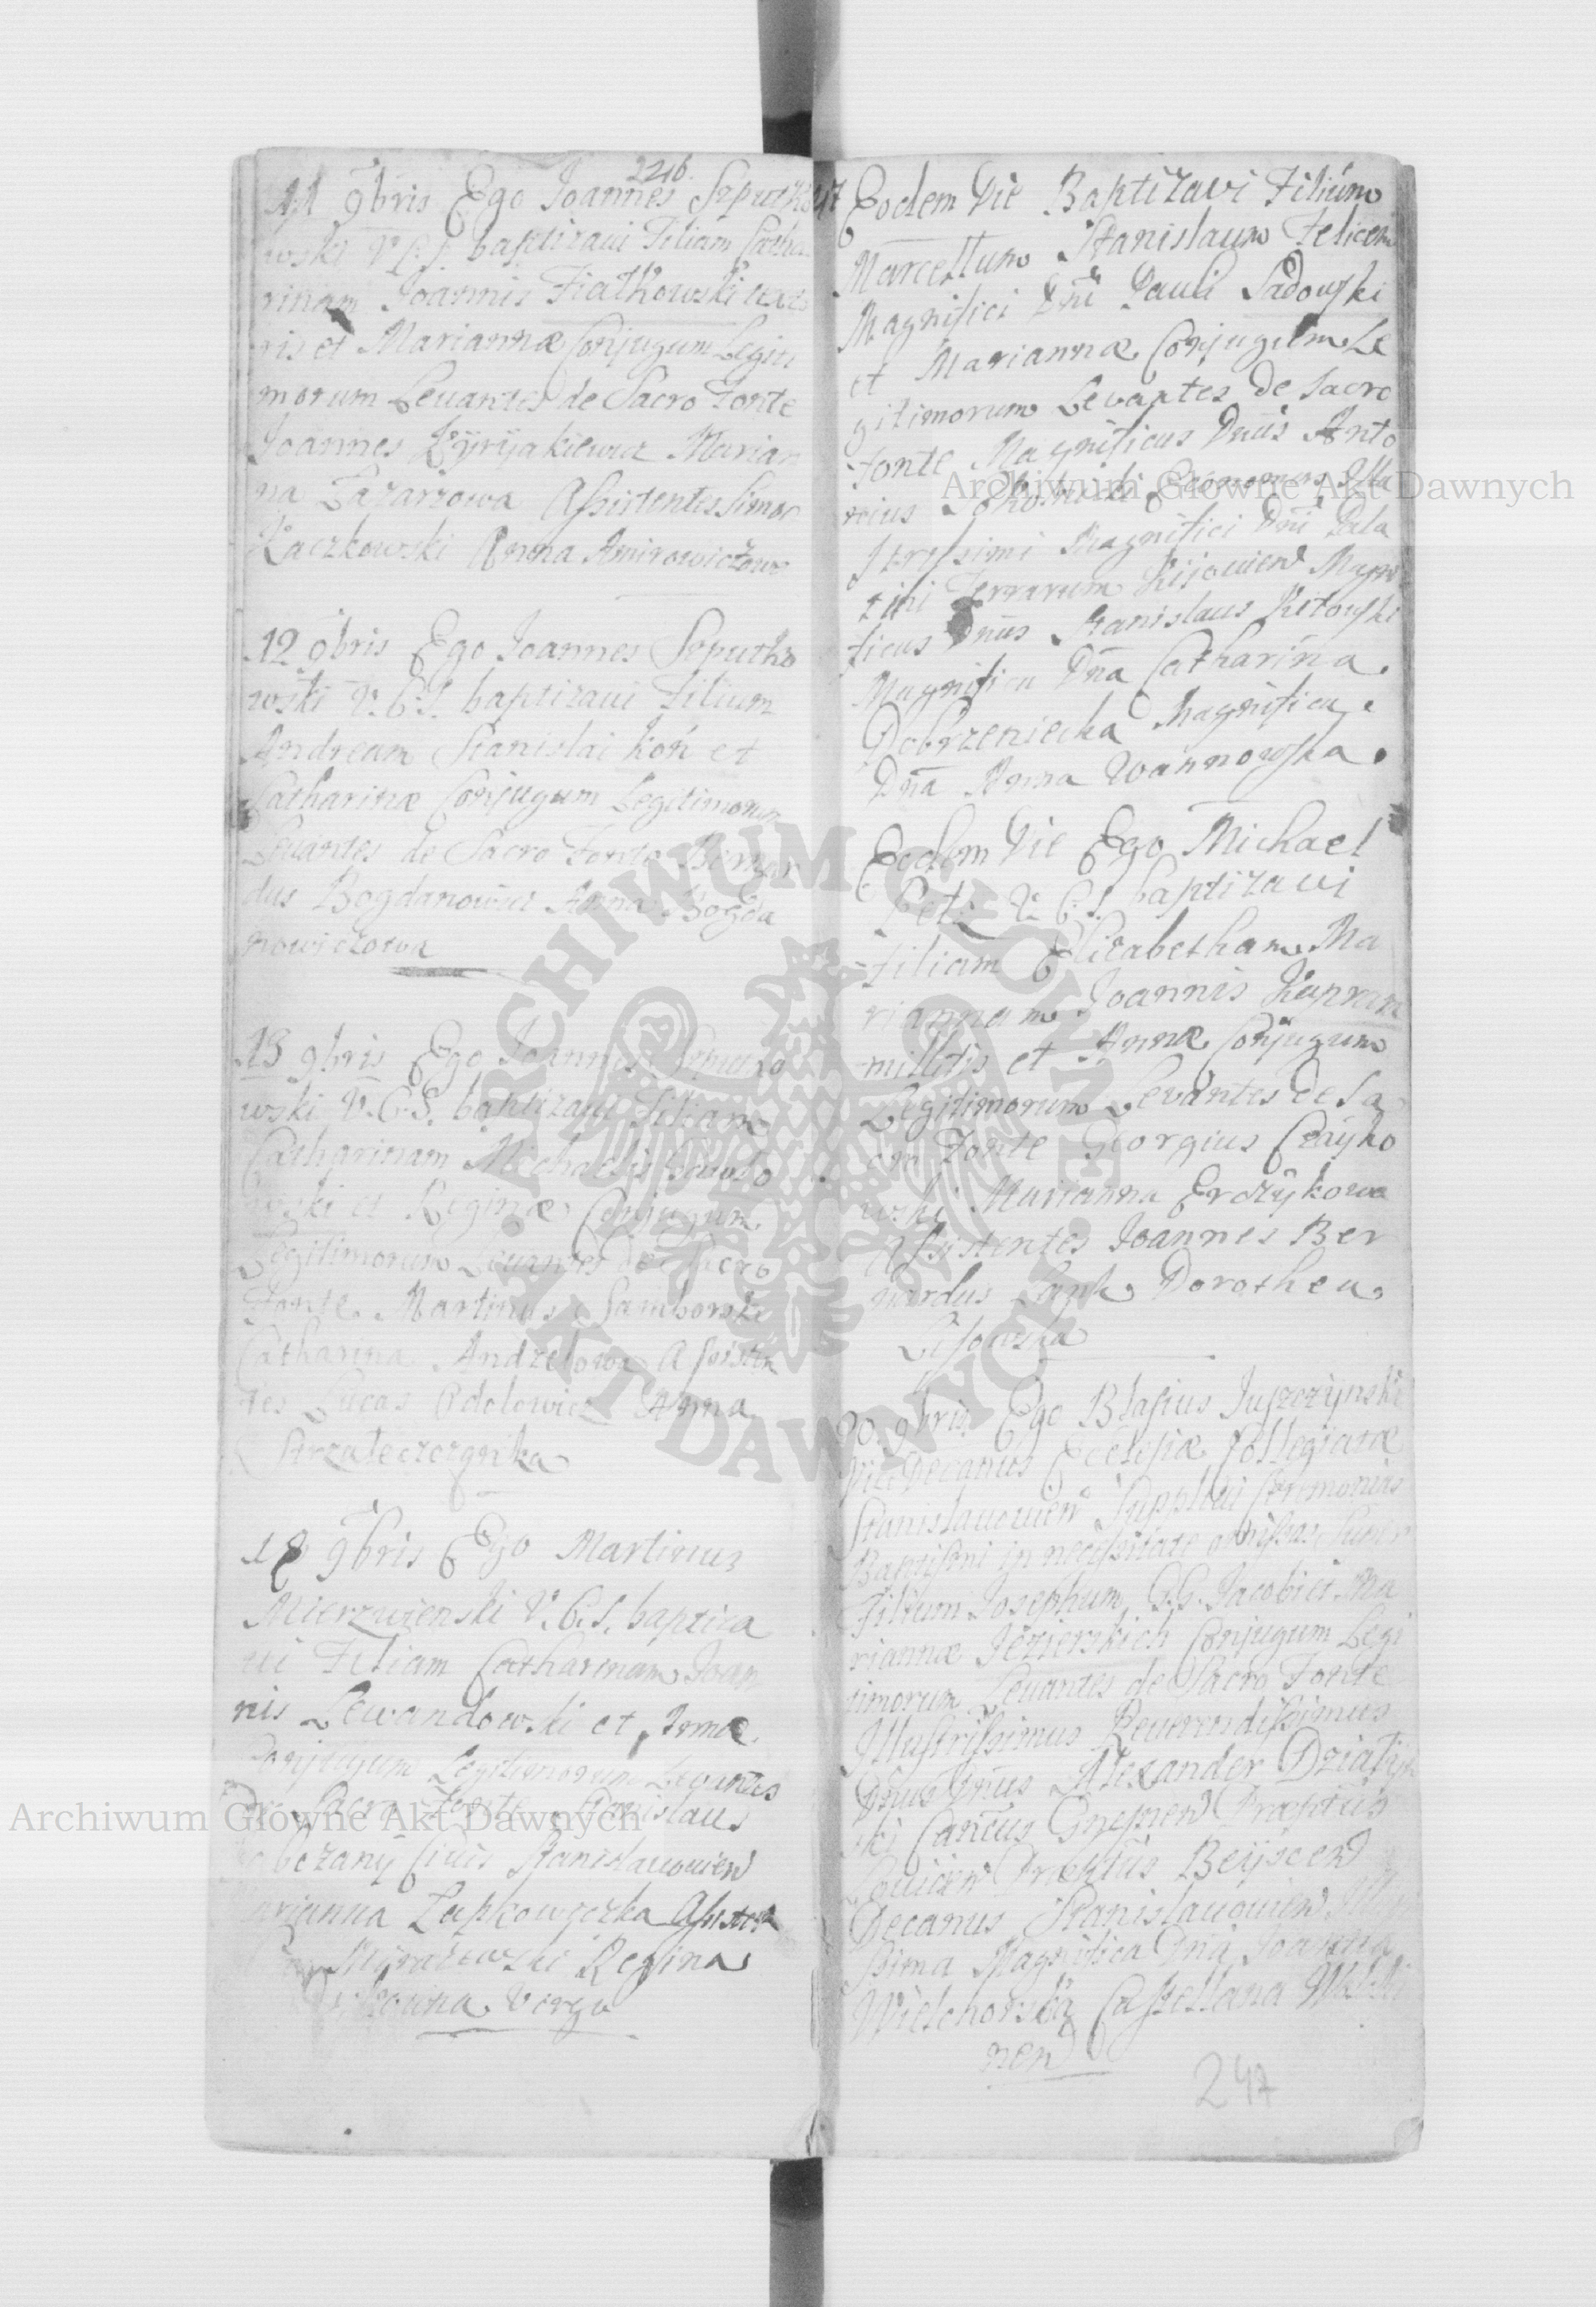 2216.
11 9bris Ego Joannes Szputko
wski V.C.S. baptizavi Filiam Catha
rinam Joannis Fiatkowski
ris et Mariannæ Conjugum Legiti
morum Levantes de Sacro Fonte
Joannes Kÿrÿjakiewicz Marian
na Lazarzowa Assistentes Simon
Kaczkowski Anna Amirowiczowa
12 9bris Ego Joannes Szputko
wski V.C.S. baptizavi Filium
Andream Stanislai Koń et
Catharinæ Conjugum Legitimorum
Levantes de Sacro Fonte Bernar
dus Bogdanowicz Anna Bogda
nowiczowa
13 9bris Ego Joannes Szputko
wski V.C.S. baptizavi Filiam
Catharinam Michaelis
wski et Reginæ Conjugum
Legitimorum Levantes de Sacro
Fonte Martinus Samborski
Catharina Andzelowa Assisten
tes Lucas Adolowicz Anna
9bris Ego Martinus
Mierzwienski V.C.S. baptiza
vi Filiam Catharinam Joan
nis Lewandowski et Annæ
Conjugum Legitimorum Levantes
De Sacro Fonte Stanislaus
Civis Stanislauowien
Zupkowiczka Assisten
Regina
Virgo
Eodem Die Baptizavi Filium
Marcellum Stanislaum Felicem
Magnifici Dni Pauli Sadowski
et Mariannæ Conjugum Le
gitimorum Levantes De Sacro
Fonte Magnificus Dnus Anto
nius Economus Illu
strissimi Magnifici Dni Pala
tini Terrarum Kijowien Magni
ficus Dnus Stanislaus Kitowski
Magnifica Dna Catharina
Dobrzeniecka Magnifica
Dna Anna Woannowska
Eodem Die Ego Michael
Petz V.C.S. baptizavi
Filiam Elizabetham Ma
riannam Joannis Kapran
militis et Annæ Conjugum
Legitimorum Levantes de Sa
cro Fonte Georgius Czayko
wski Marianna Erdzÿkowa
Assistentes Joannes Ber
nardus Lank Dorothea
Lisowska
20 9bris Ego Blasius Juszczynski
Vice Decanus Ecclesiæ Collegiatæ
Stanislauowien Supplevi Ceremonias
Baptismi in necessitate omissas Super
Filium Josephum G.G. Jacobi et Ma
riannæ Jezierskich Conjugum Legi
timorum Levantes de Sacro Fonte
Illustrissimus Reverendissimus
Dnus Dnus Alexander Dziatÿn
ski Cancus Gnesnen Præptus
Lovicien Præptus Beÿscen
Decanus Stanislauowien
ssima Magnifica Dna Joanna
Wielchorska Castellana
nen
247
Archiwum Główne Akt Dawnych
Archiwum Główne Akt Dawnych
ARCHIWUM GŁÓWNE
AKT DAWNYCH